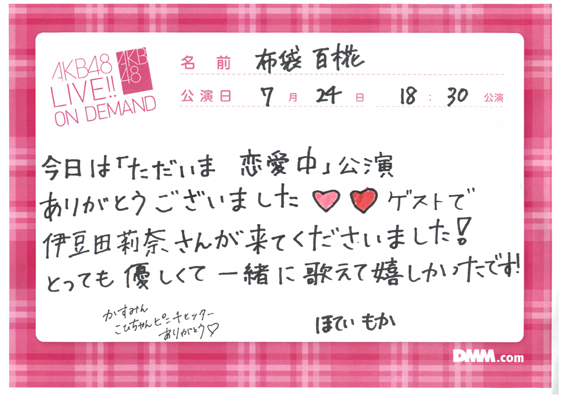 AKB48
LIVE!!
ON DEMAND
AKB
48
名前 布袋百椛
公演日 7月24日 18:30公演
今日は「ただいま 恋愛中」公演
ありがとうございました♥♥ゲストで
伊豆田莉奈さんが来てくださいました!
とっても優しくて一緒に歌えて嬉しかったです!
かすみん
こびちゃんピンチヒッター
ありがとう♡
ほてい もか
DMM.com